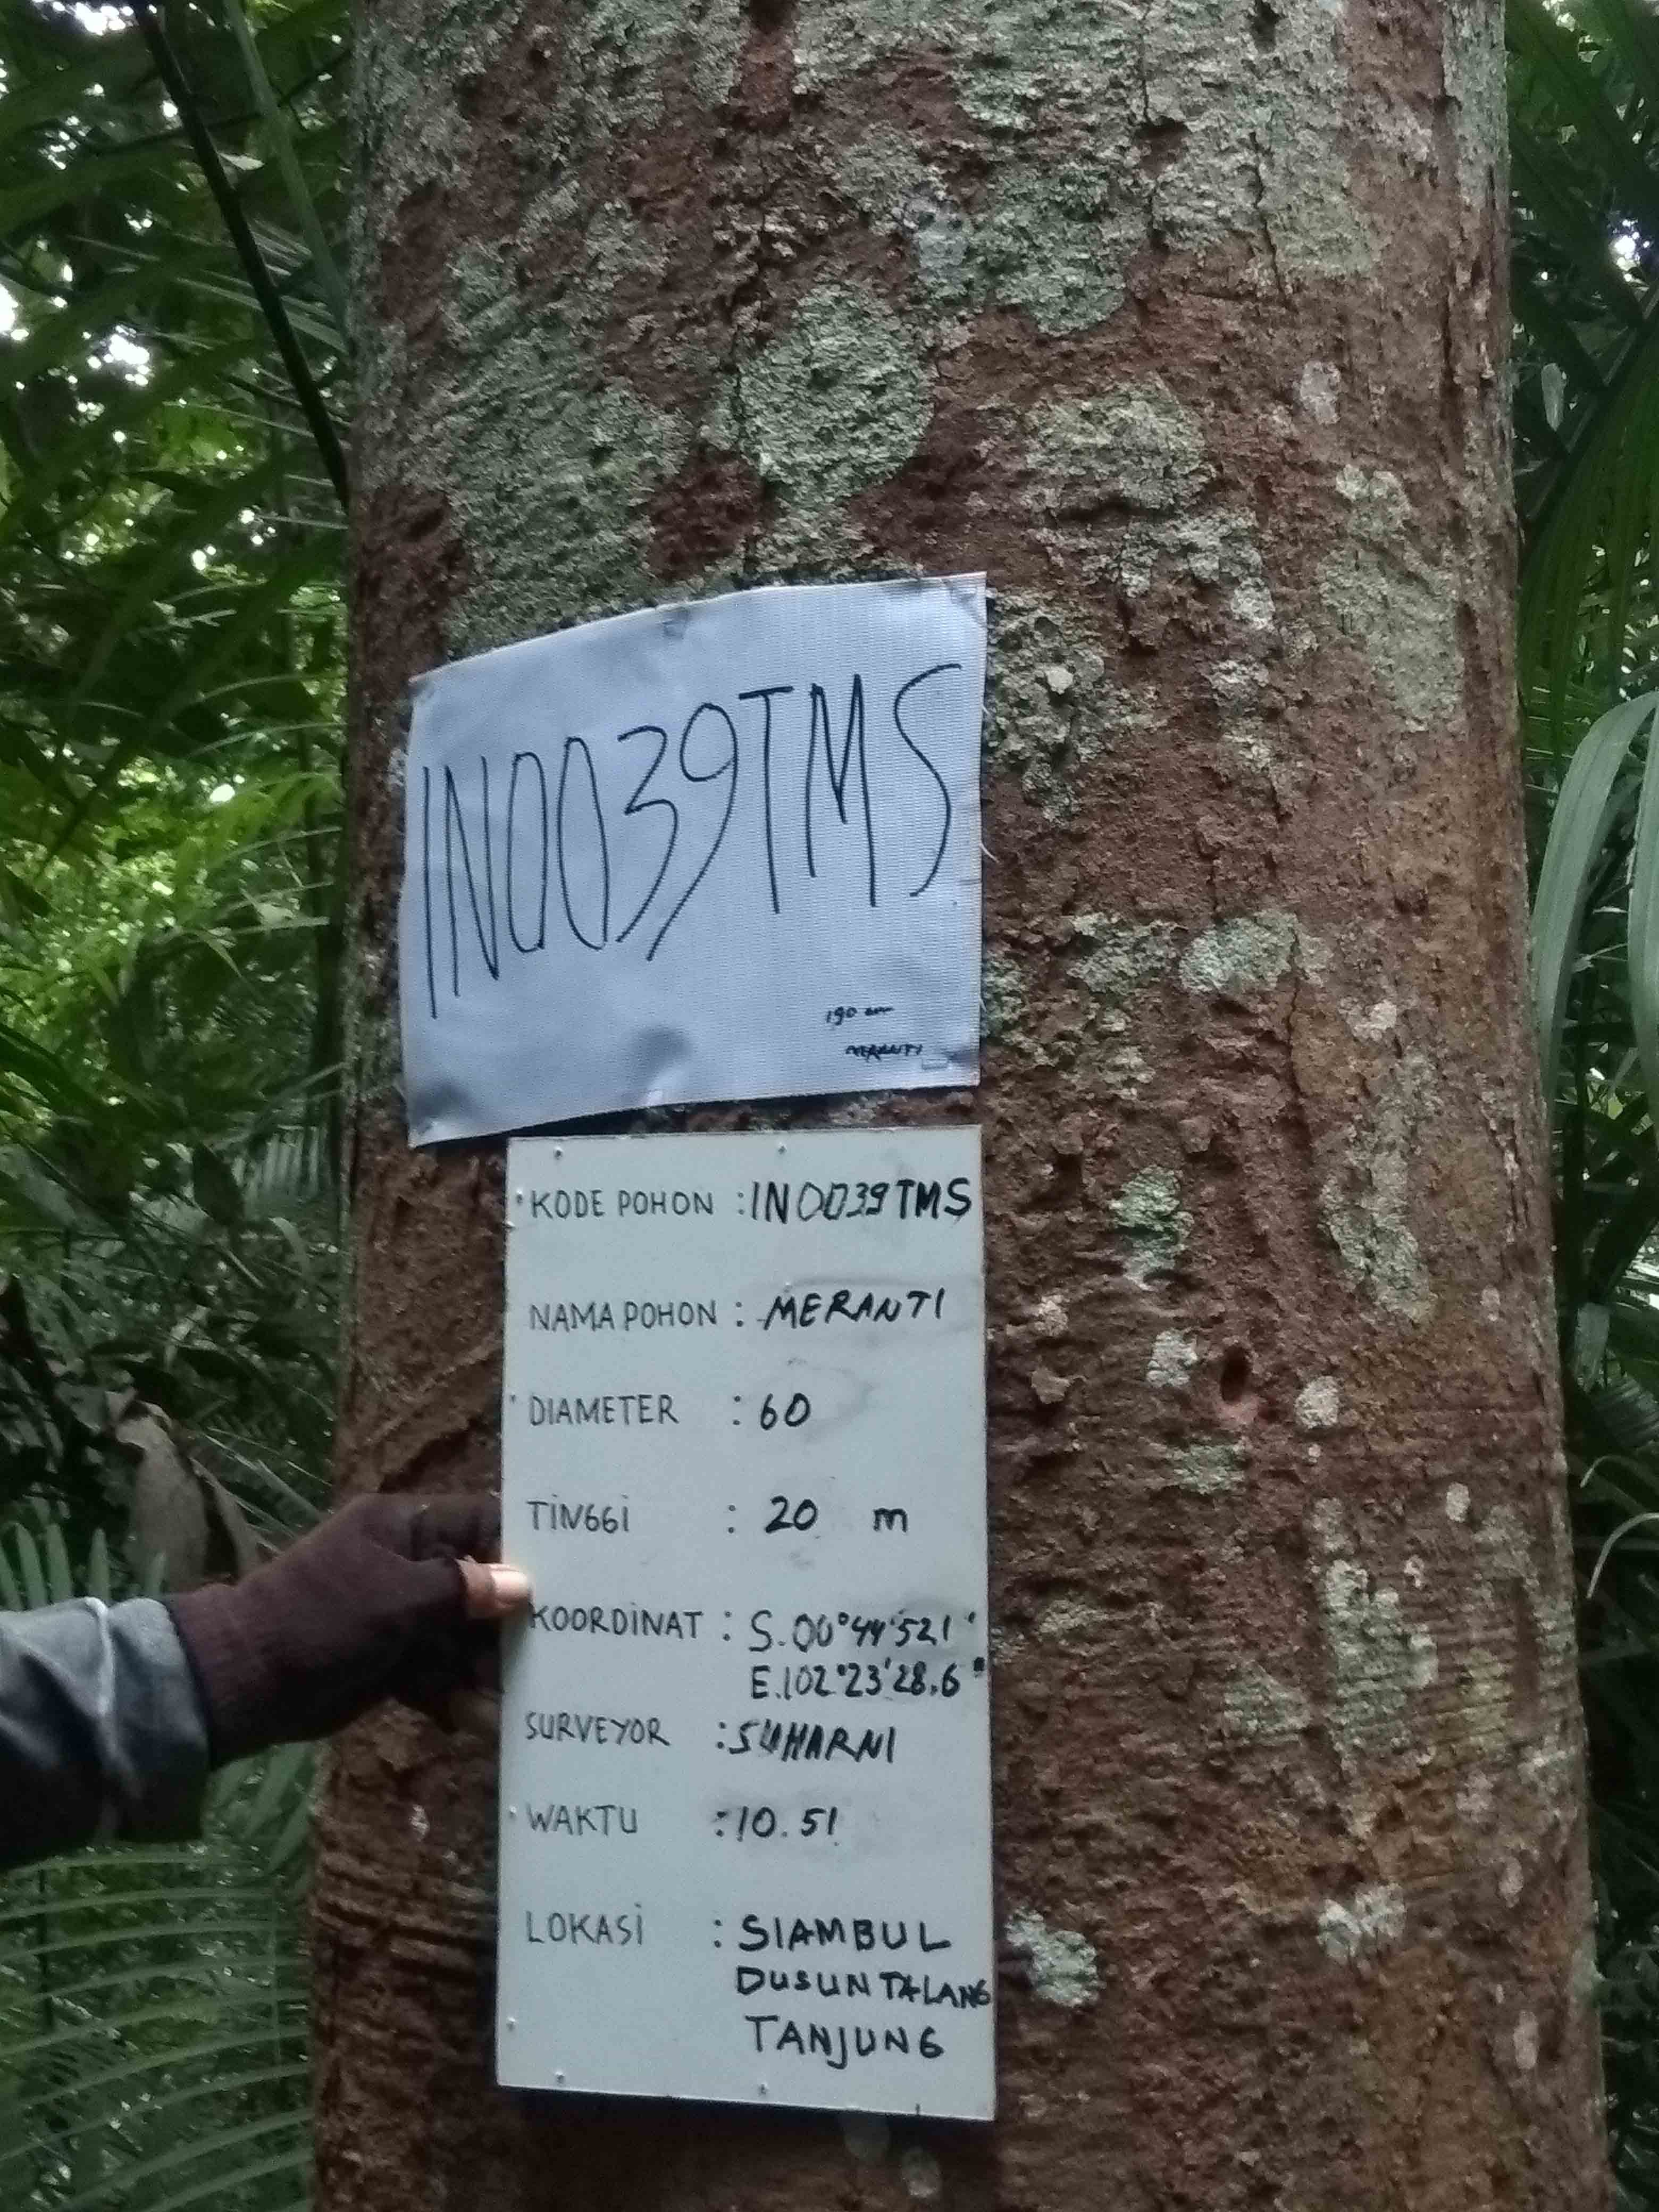 IN0039TMS
190 cm
MERANTI
KODE POHON : IN0039TMS
NAMA POHON : MERANTI
DIAMETER : 60
TINGGI : 20 m
KOORDINAT : S.00°44'52,1"
E.102°23'28,6"
SURVEYOR : SUHARNI
WAKTU : 10.51
LOKASI : SIAMBUL
DUSUN TALANG
TANJUNG